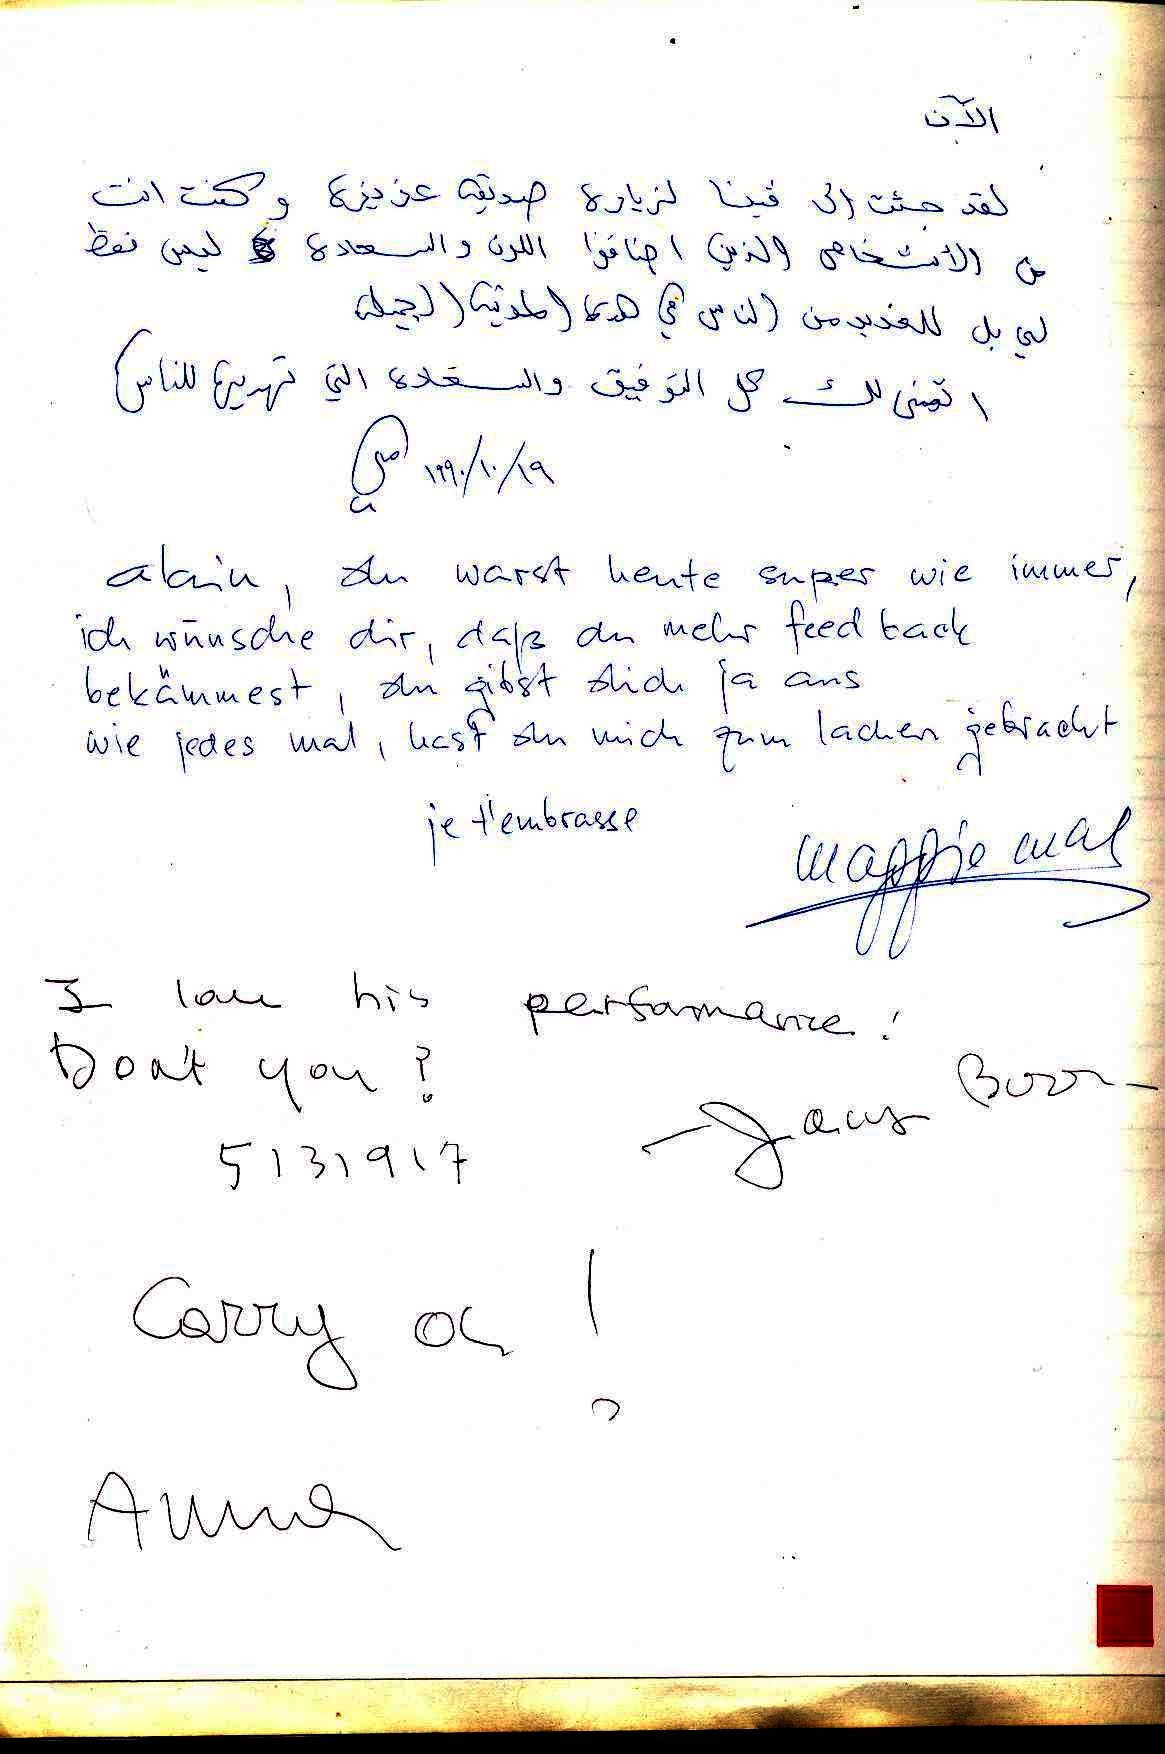 الآن
لقد جئت إلى فينا لزيارة صديقة عزيزة و كنت انت
من الأشخاص الذين اضافوا اللون والسعادة ليس فقط
لي بل للعديد من الناس في هذه المدينة الجميلة
اتمنى لك كل التوفيق والسعادة التي تهديها للناس
١٩٩٠/١٠/١٩ مي
alain, du warst heute super wie immer,
ich wünsche dir, daß du mehr feed back
bekämmest, du gibst dich ja aus
wie jedes mal, hast du mich zum lachen gebracht
je t'embrasse
Maggie
I love his performance!
Don't you?
5131917
Carry on!
Anna